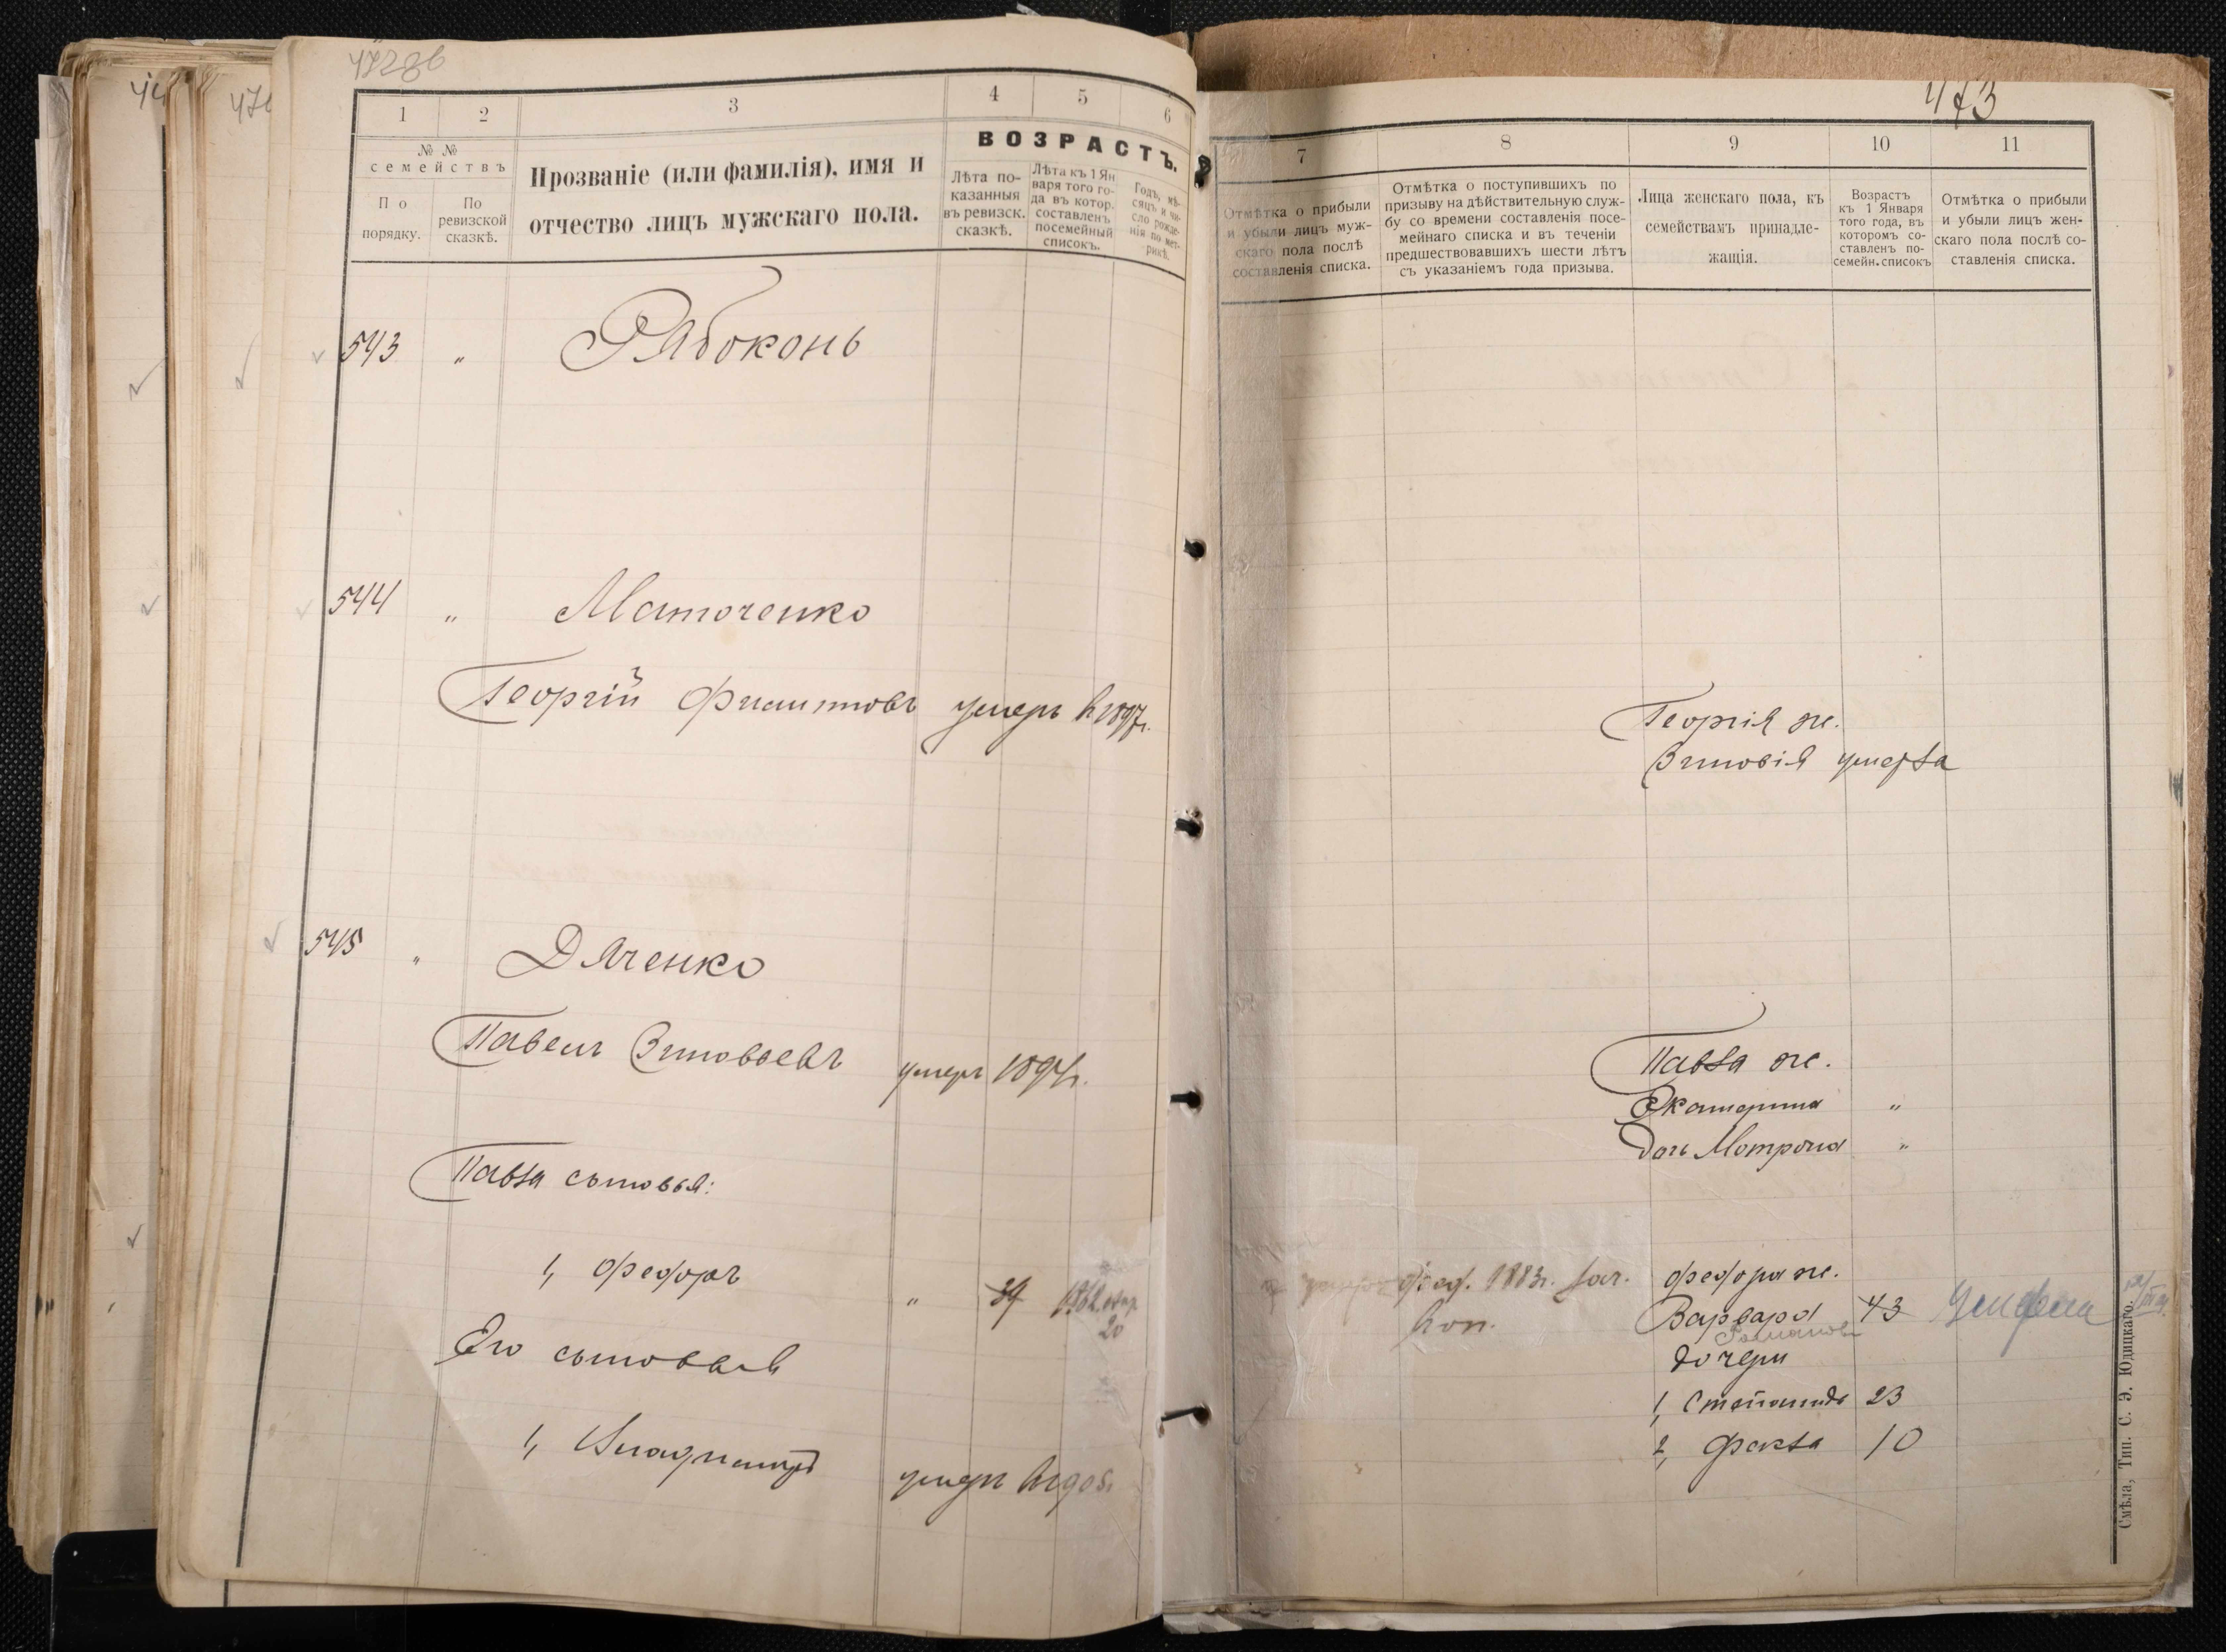 472зв
1
2
3
4
5
6
№ №
семействъ
По порядку.
По ревизской сказкѣ.
Прозваніе (или фамилія), имя и
отчество лицъ мужскаго пола.
ВОЗРАСТЪ.
Лѣта по-
казанныя
въ ревизск.
сказкѣ.
Лѣта къ 1 Ян
варя того го-
да въ котор.
составленъ
посемейный
списокъ.
Годъ, мѣ-
сяцъ и чи-
сло рожде-
нія по мет-
рикѣ.
543 " Рябоконь
544 " Маточенко
Георгій Филиповъ умеръ в 1897г.
545 " Дяченко
Павелъ Зиновьевъ умеръ 1894г.
Павла сыновья:
1, Федоръ " 39 1862
20
Его сыновья
1, Владиміръ умеръ в 1905.
473
7
8
9
10
11
Отмѣтка о прибыли
и убыли лицъ муж-
скаго пола послѣ
составленія списка.
Отмѣтка о поступившихъ по
призыву на дѣйствительную служ-
бу со времени составленія посе-
мейнаго списка и въ теченіи
предшествовавшихъ шести лѣтъ
съ указаніемъ года призыва.
Лица женскаго пола, къ
семействамъ принадле-
жащія.
Возрастъ
къ 1 Января
того года, въ
которомъ со-
ставленъ по-
семейн. списокъ
Отмѣтка о прибыли
и убыли лицъ жен-
скаго пола послѣ со-
ставленія списка.
Георгія же.
Зиновія умерла
Павла же.
Екатерина "
дочь Мотрона "
1883г. Федора же.
Варвара 43
дочери
1, Степанида 23
2, Фекла 10
Смѣла, Тип. С. Э. Юдицкаго.